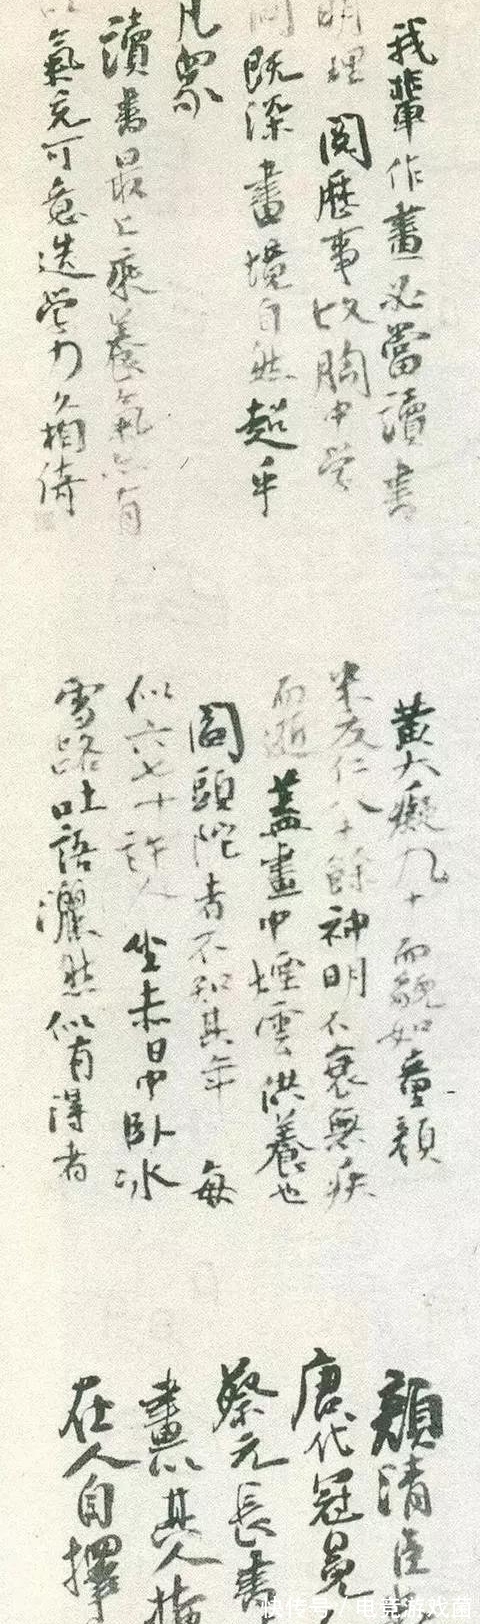 我輩作畫必當讀書
明理閱歷事故胸中學
問既深畫境自然超乎
凡眾
讀書最上乘養氣亦有
以氣充可意造學力久相倚
黃大癡九十而貌如童顏
米友仁八十餘神明不衰無疾
而逝蓋畫中煙雲供養也
閻頭陀者不知其年每
似六七十許人坐赤日中臥冰
雪路吐語灑然似有得者
顏清臣書
唐代冠冕
蔡元長書
畫以其人
在人自擇
快传号/电竞游戏菌